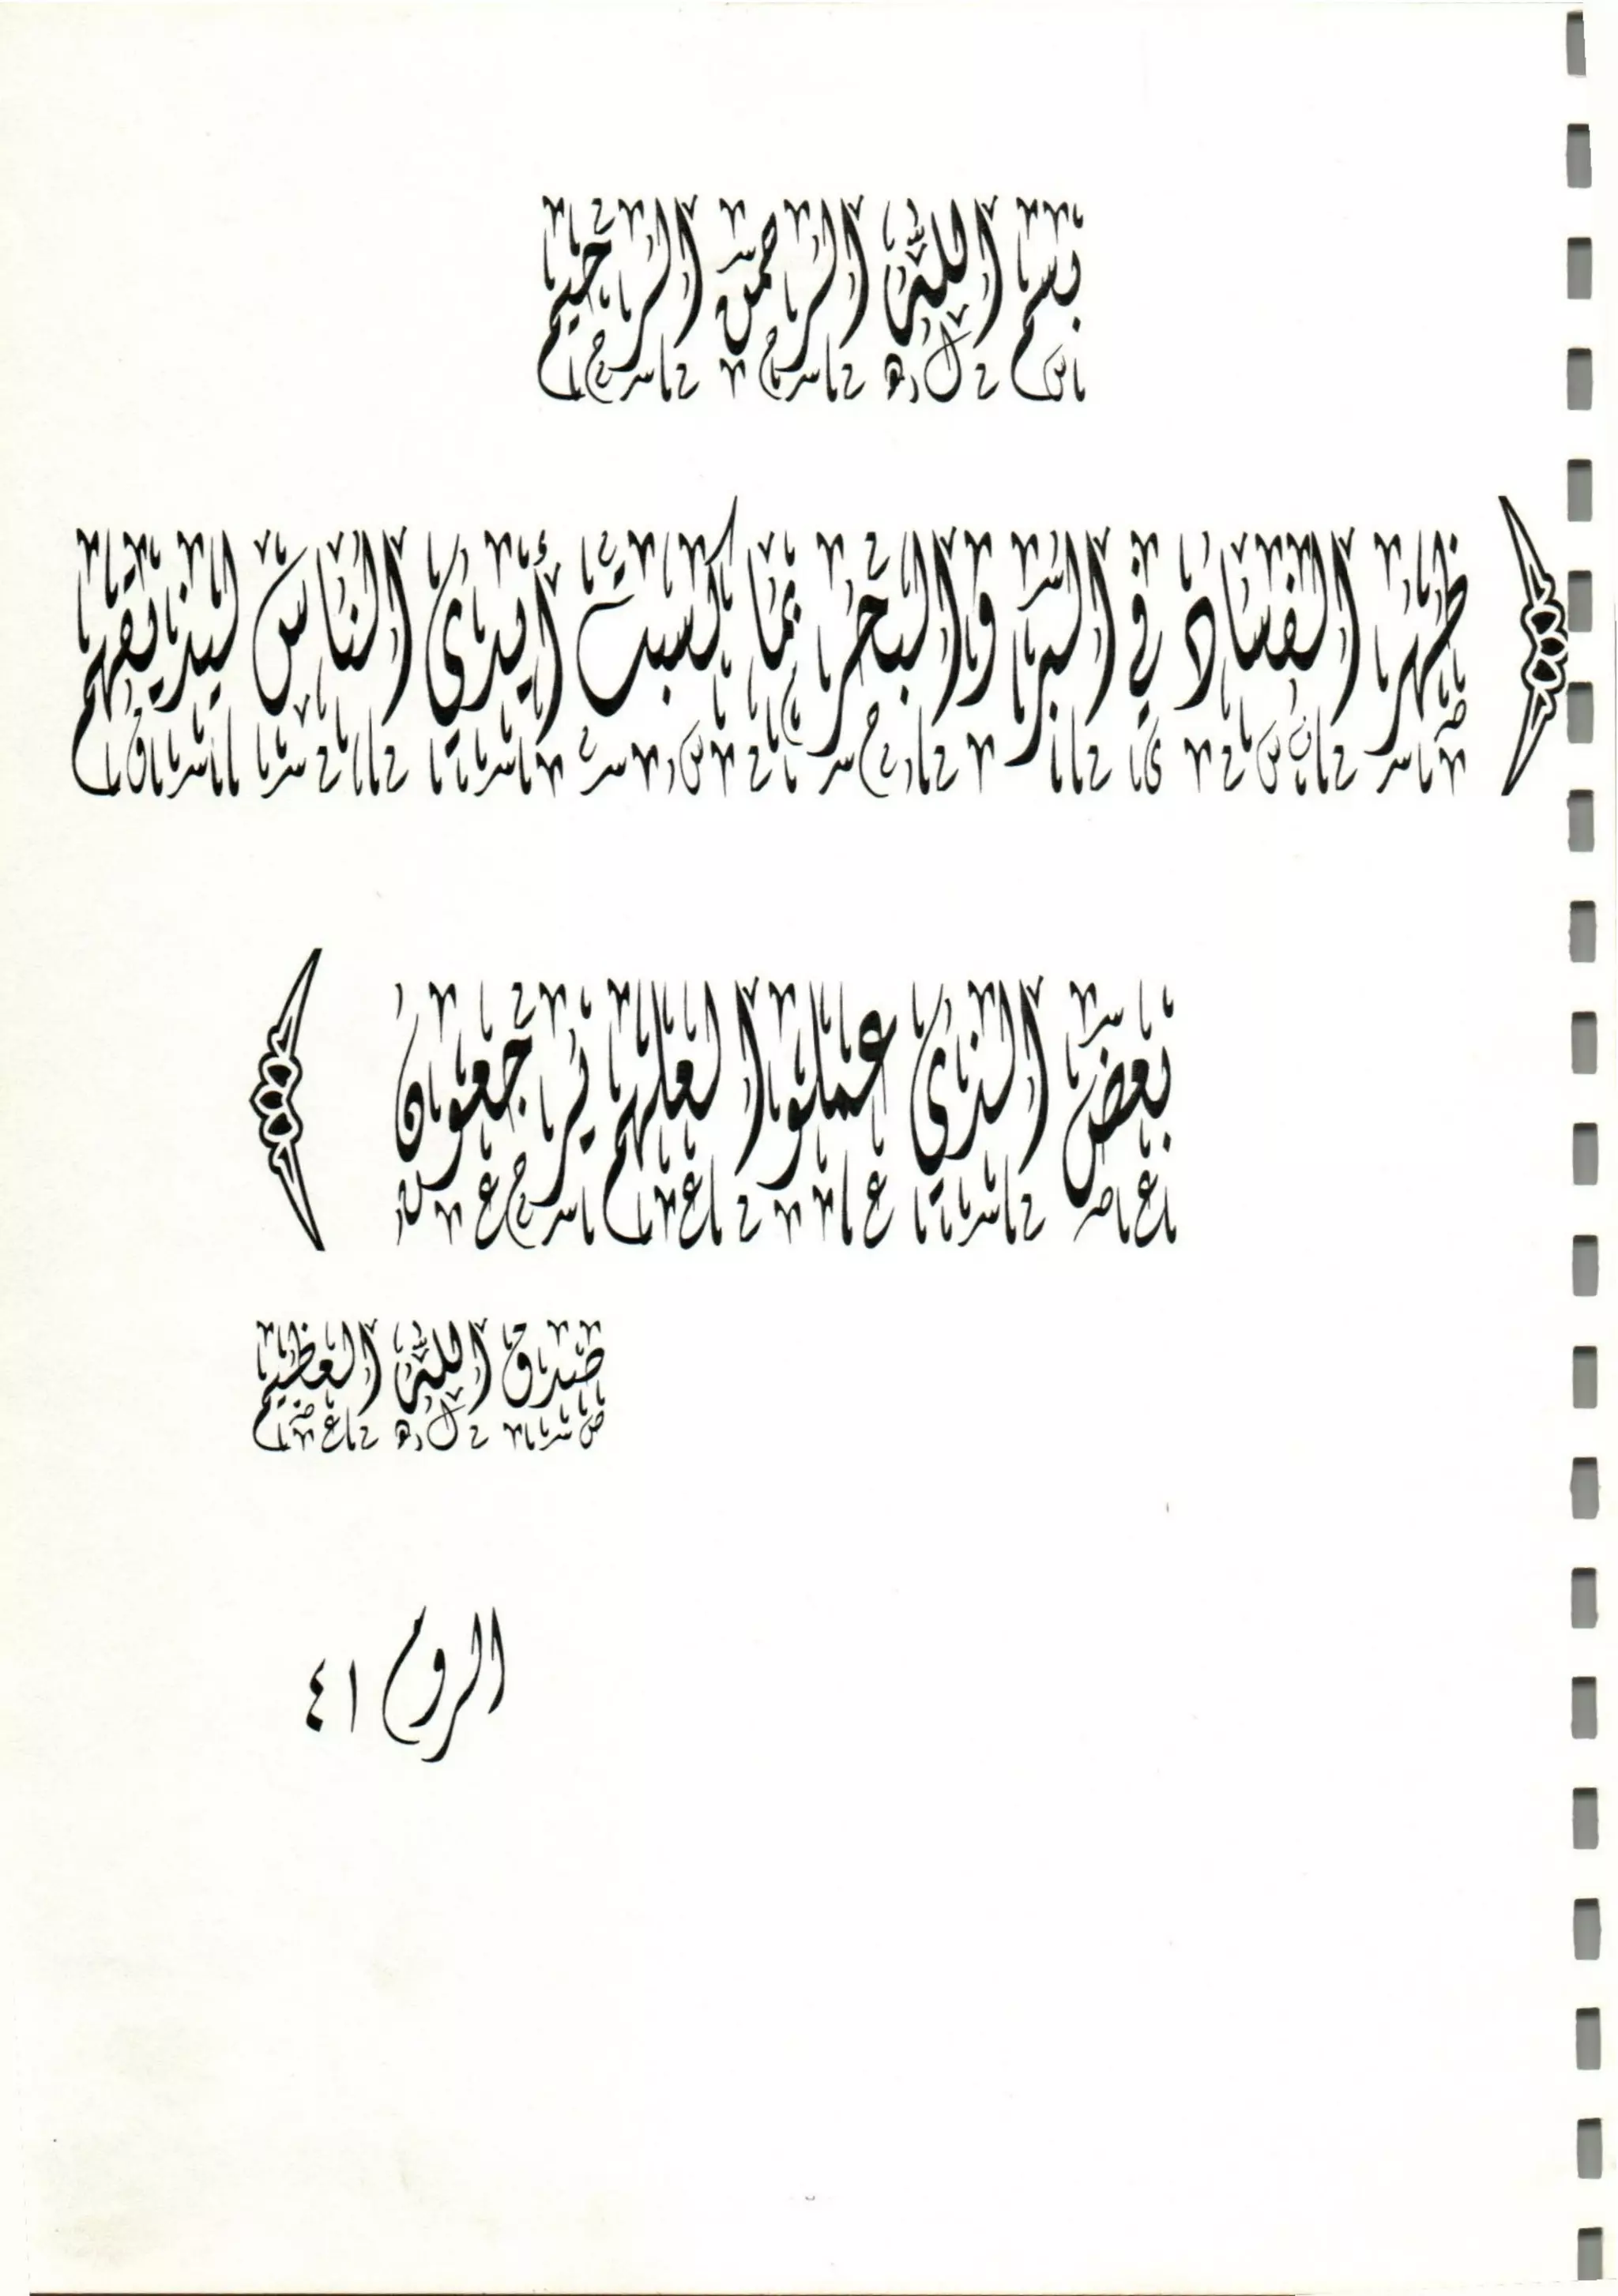 بسم الله الرحمن الرحيم
﴿ ظهر الفساد في البر والبحر بما كسبت أيدي الناس ليذيقهم
بعض الذي عملوا لعلهم يرجعون ﴾
صدق الله العظيم
الروم ٤١